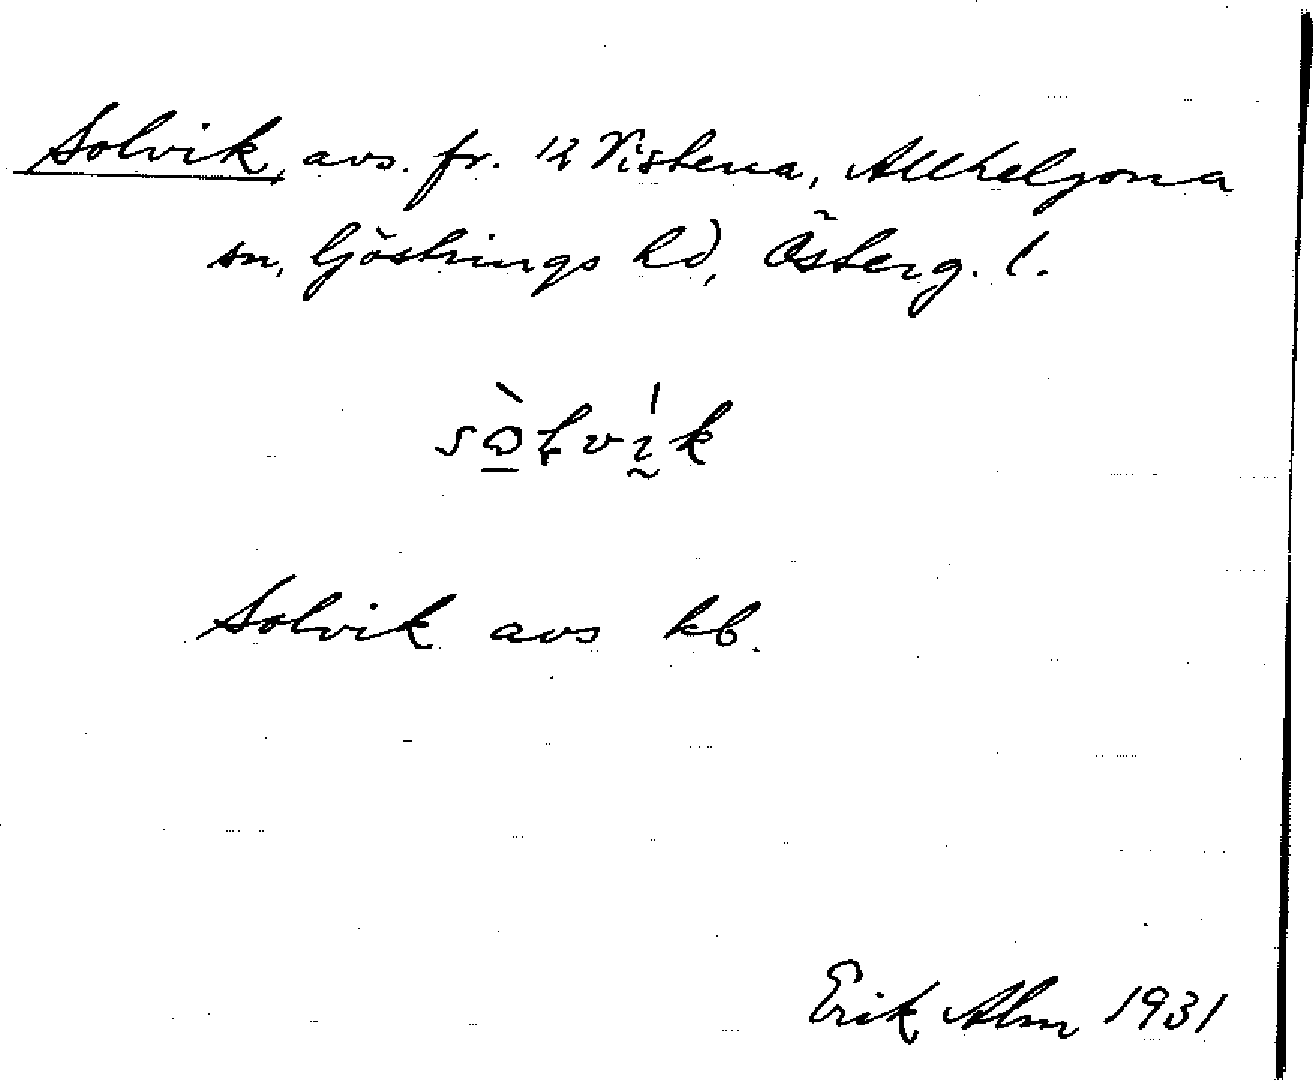 Solvik, avs. fr. 12 Vistena, Allhelgona
sn, Göstrings hd, Österg. l.
Solvik avs kb.
Erik Alm 1931